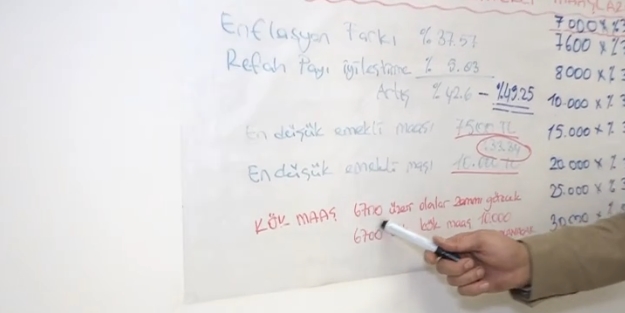 MAAŞLAR
Enflasyon Farkı %37.57
Refah Payı iyileştirme %
Artış %42.6 - %49.25
En düşük emekli maaşı 7500 TL
33.34
En düşük emekli maaşı 10.000 TL
KÖK MAAŞ 6700 üzeri olanlar zammı görecek
6700 kök maaş 10.000
7000 x %3
7600 x %3
8000 x %3
10.000 x %3
15.000 x %3
20.000 x %
25.000 x
30.000 x